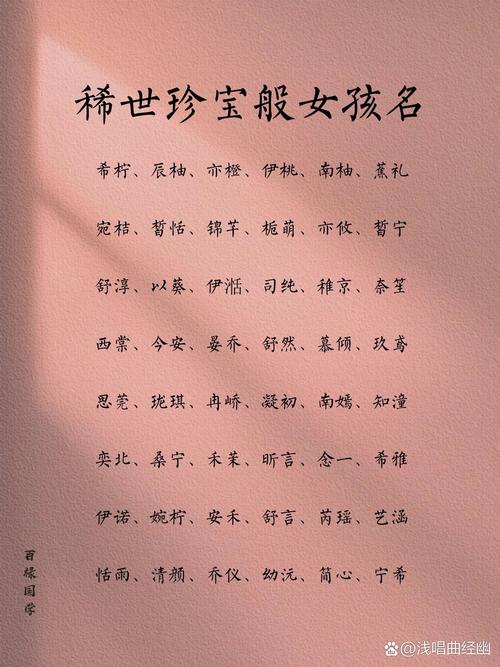 稀世珍宝般女孩名
希柠、辰柚、亦橙、伊桃、南柚、蕉礼
宛桔、皙恬、锦芊、栀萌、亦攸、皙宁
舒淳、以葵、伊湉、司纯、稚京、奈笙
西棠、今安、晏乔、舒然、慕倾、玖鸢
思莞、珑琪、冉峤、凝初、南嫣、知潼
奕北、桑宁、禾茉、昕言、念一、希雅
伊诺、婉柠、安禾、舒言、芮瑶、艺涵
恬雨、清颜、乔仪、幼沅、简心、宁希
百禄国学
@浅唱曲经幽